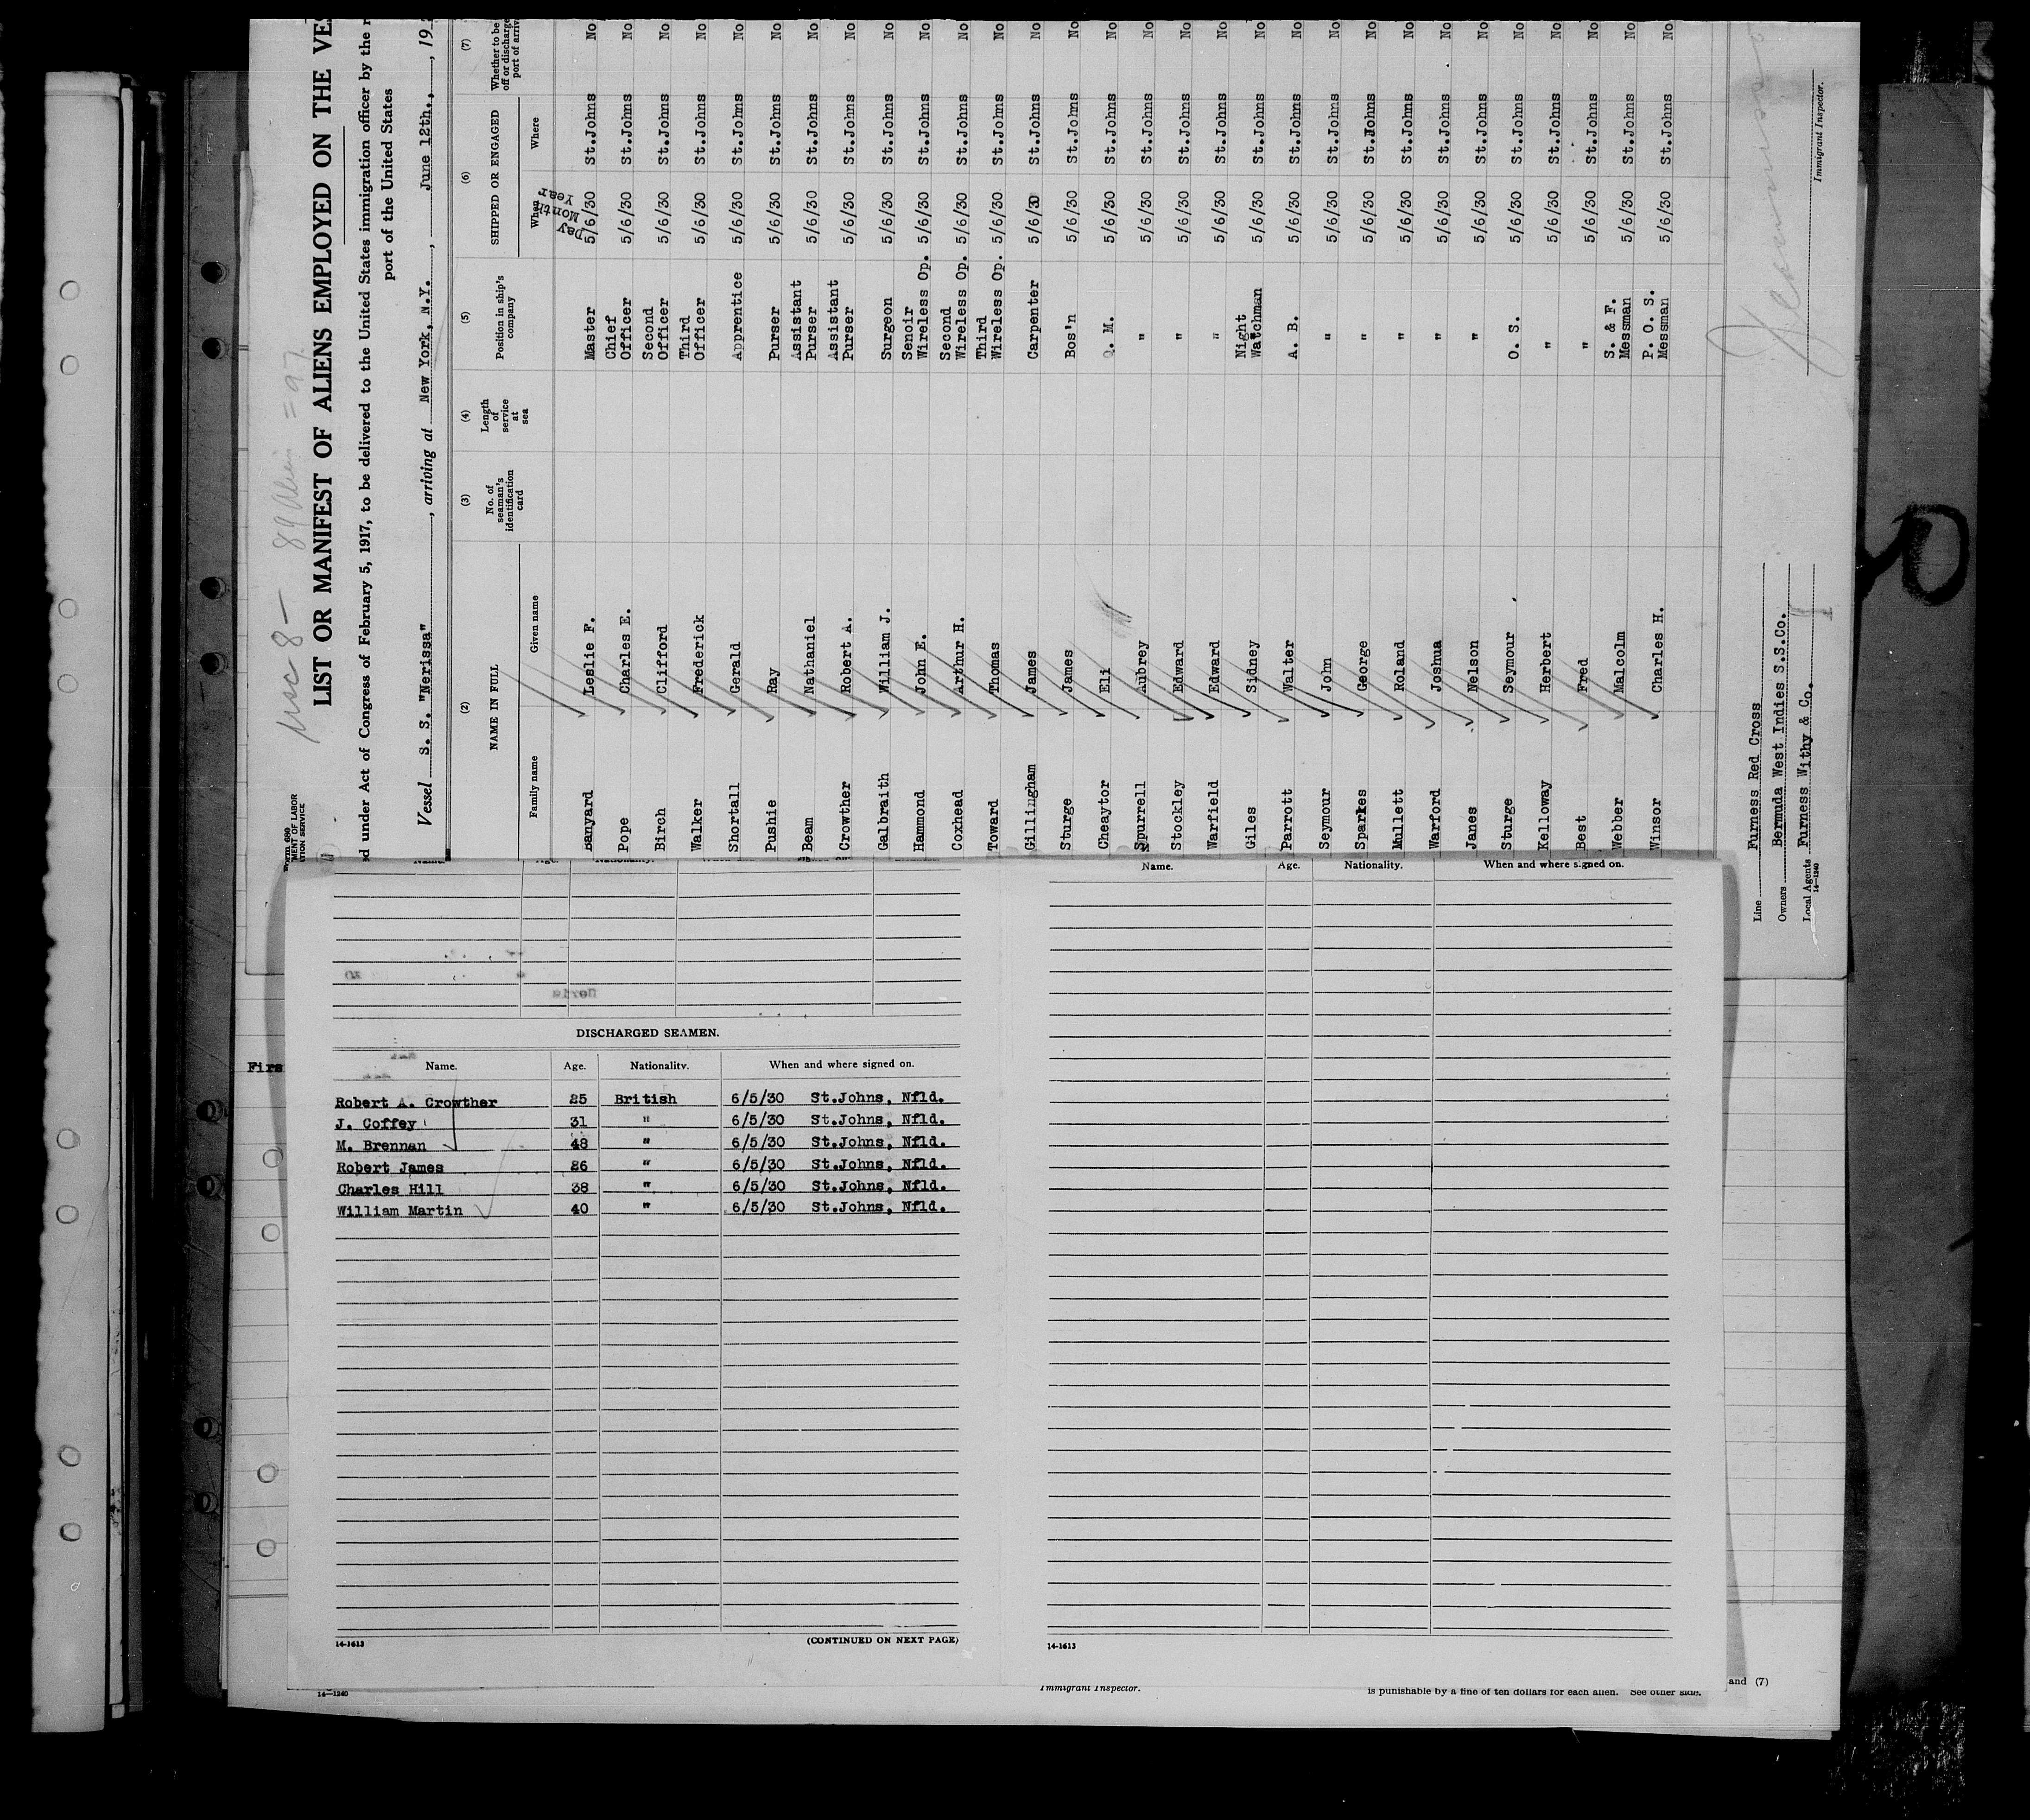 Form 680
MENT OF LABOR
ATION SERVICE
LIST OR MANIFEST OF ALIENS EMPLOYED ON THE VES
ed under Act of Congress of February 5, 1917, to be delivered to the United States immigration officer by the r
port of the United States
Vessel S. S. "Nerissa" , arriving at New York, N.Y. , June 12th., , 19
(2) (3) (4) (5) (6) (7)
NAME IN FULL No. of seaman's identification card Length of service at sea Position in ship's company SHIPPED OR ENGAGED Whether to be off or discharge port of arriva
Family name Given name When Where
Day Month Year
Banyard Leslie F. Master 5/6/30 St.Johns No
Pope Charles E. Chief Officer 5/6/30 St.Johns No
Birch Clifford Second Officer 5/6/30 St.Johns No
Walker Frederick Third Officer 5/6/30 St.Johns No
Shortall Gerald Apprentice 5/6/30 St.Johns No
Pushie Ray Purser 5/6/30 St.Johns No
Beam Nathaniel Assistant Purser 5/6/30 St.Johns No
Crowther Robert A. Assistant Purser 5/6/30 St.Johns No
Galbraith William J. Surgeon 5/6/30 St.Johns No
Hammond John E. Senoir Wireless Op. 5/6/30 St.Johns No
Coxhead Arthur H. Second Wireless Op. 5/6/30 St.Johns No
Toward Thomas Third Wireless Op. 5/6/30 St.Johns No
Gillingham James Carpenter 5/6/30 St.Johns No
Sturge James Bos'n 5/6/30 St.Johns No
Cheaytor Eli Q. M. 5/6/30 St.Johns No
Spurrell Aubrey " 5/6/30 St.Johns No
Stockley Edward " 5/6/30 St.Johns No
Warfield Edward " 5/6/30 St.Johns No
Giles Sidney Night Watchman 5/6/30 St.Johns No
Parrott Walter A. B. 5/6/30 St.Johns No
Seymour John " 5/6/30 St.Johns No
Sparkes George " 5/6/30 St.Johns No
Mullett Roland " 5/6/30 St.Johns No
Warford Joshua " 5/6/30 St.Johns No
Janes Nelson " 5/6/30 St.Johns No
Sturge Seymour O. S. 5/6/30 St.Johns No
Kelloway Herbert " 5/6/30 St.Johns No
Best Fred " 5/6/30 St.Johns No
Webber Malcolm S. & F. Messman 5/6/30 St.Johns No
Winsor Charles H. P. O. S. Messman 5/6/30 St.Johns No
Line Furness Red Cross
Owners Bermuda West Indies S.S.Co.
Local Agents Furness Withy & Co.
14—1240
Immigrant Inspector.
Firs
DISCHARGED SEAMEN.
Name. Age. Nationality. When and where signed on.
Robert A. Crowther 25 British 6/5/30 St.Johns, Nfld.
J. Coffey 31 " 6/5/30 St.Johns, Nfld.
M. Brennan 48 " 6/5/30 St.Johns, Nfld.
Robert James 26 " 6/5/30 St.Johns, Nfld.
Charles Hill 38 " 6/5/30 St.Johns, Nfld.
William Martin 40 " 6/5/30 St.Johns, Nfld.
14-1613 (CONTINUED ON NEXT PAGE)
Name. Age. Nationality. When and where signed on.
14-1613
14—1240
Immigrant Inspector.
is punishable by a fine of ten dollars for each alien. See other side.
and (7)